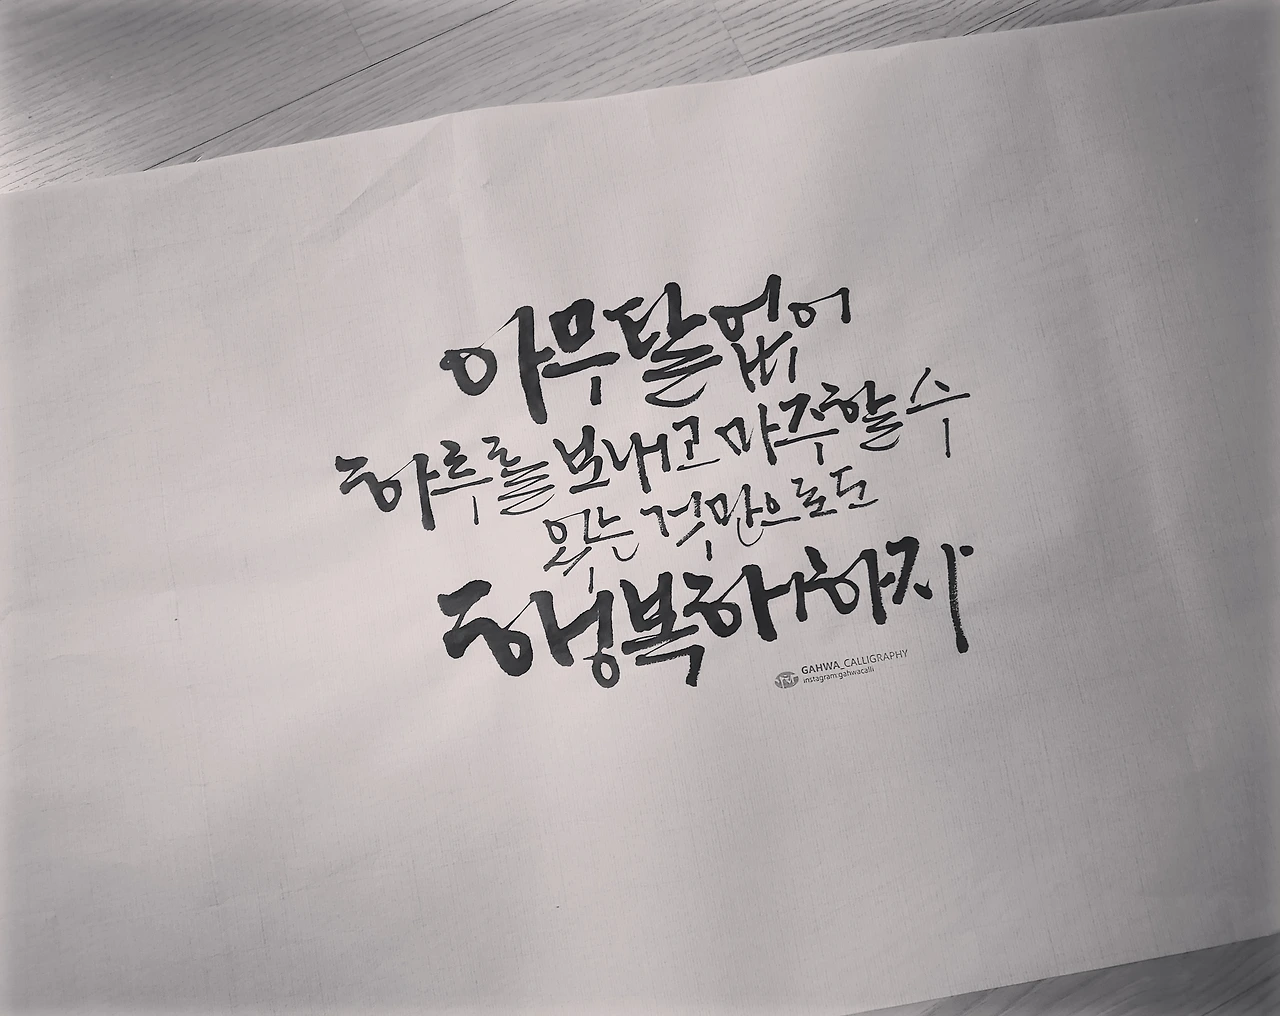 아무탈없이
하루를 보내고 마주할 수
있는 것만으로도
행복해하자
GAHWA_CALLIGRAPHY
instagram.gahwacalli